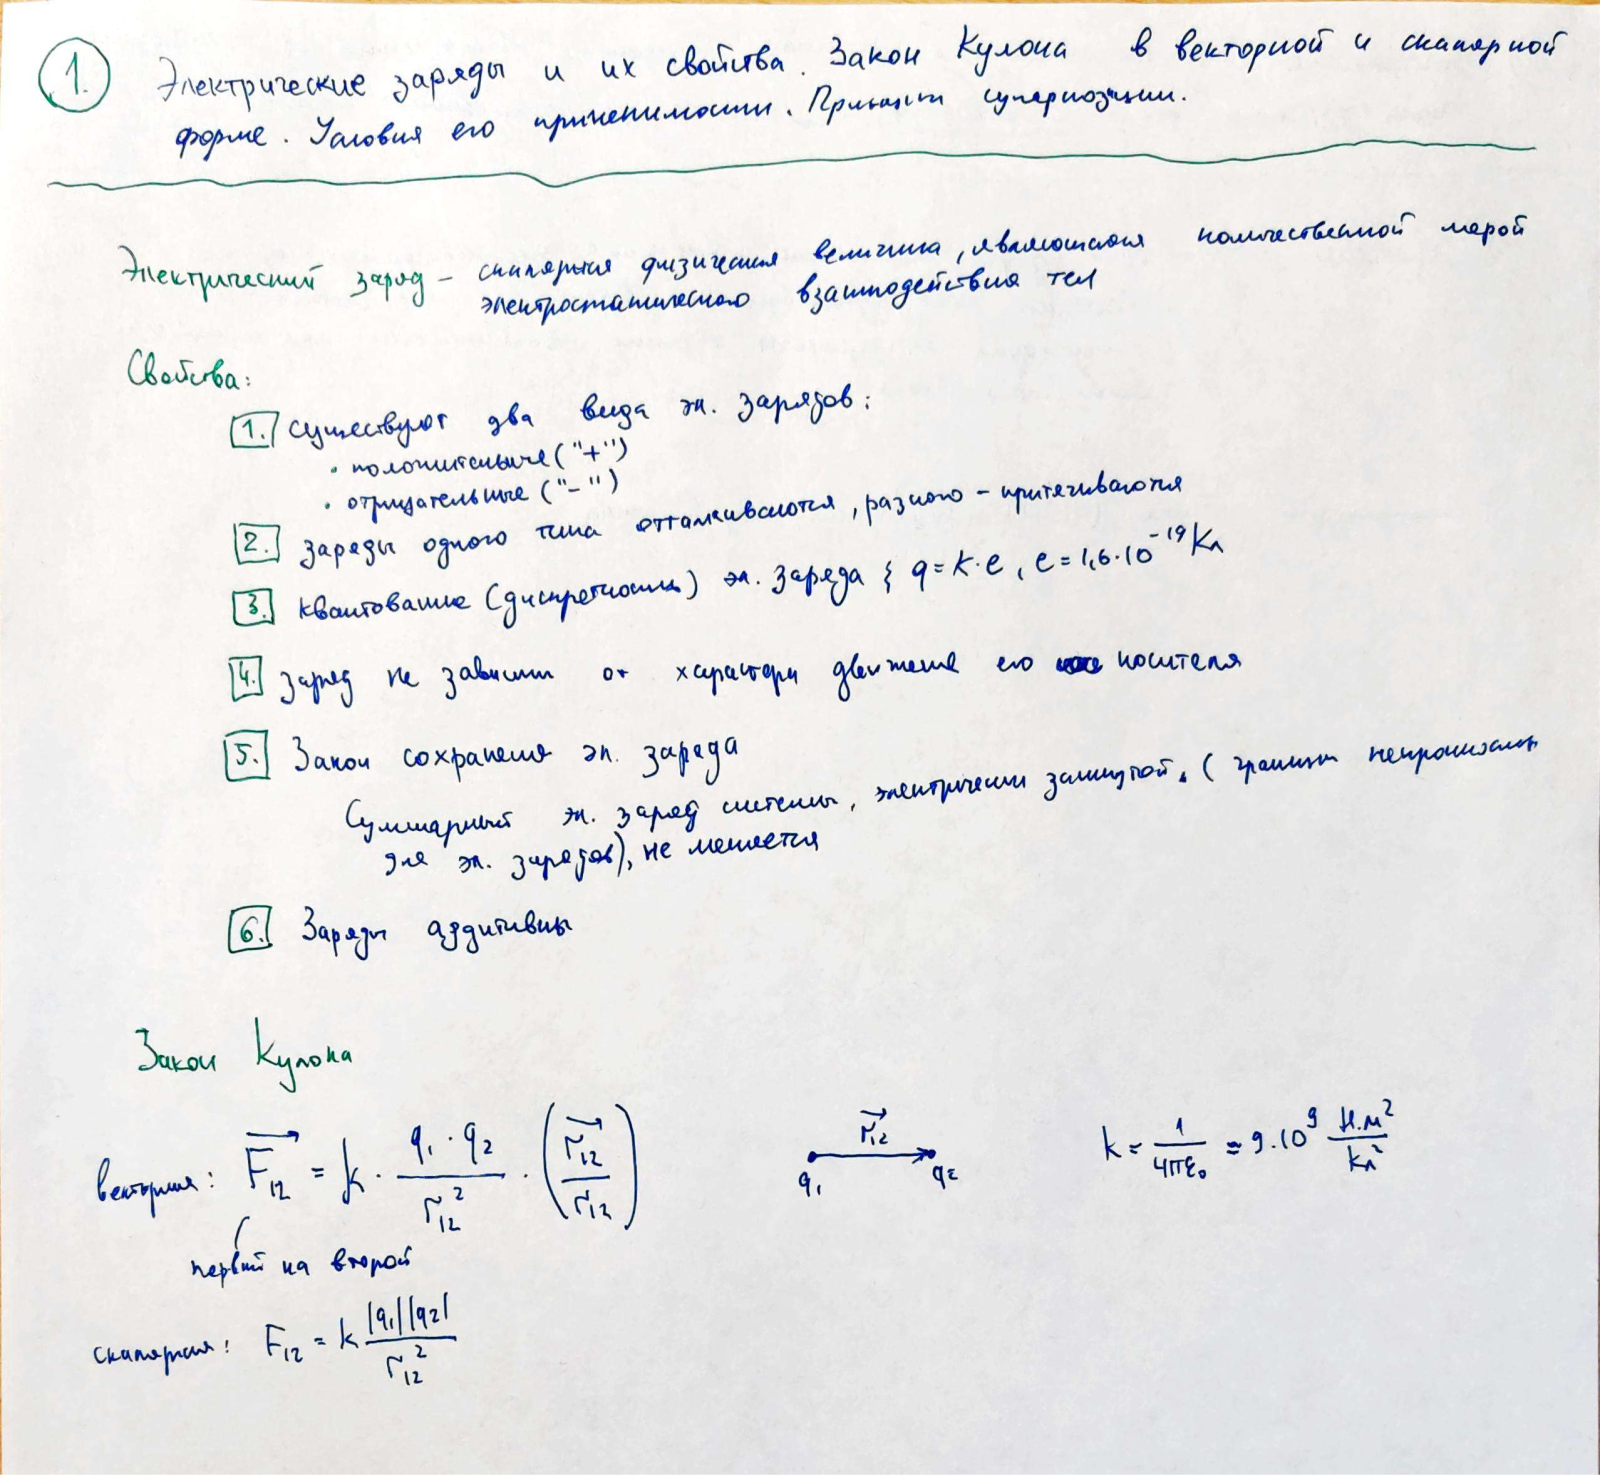 1. Электрические заряды и их свойства. Закон Кулона в векторной и скалярной
форме. Условия его применимости. Принцип суперпозиции.
Электрический заряд - скалярная физическая величина, являющаяся количественной мерой
электростатического взаимодействия тел
Свойства:
1. существуют два вида эл. зарядов:
• положительные ("+")
• отрицательные ("-")
2. заряды одного типа отталкиваются, разного - притягиваются
3. квантование (дискретность) эл. заряда { q = k·e, e = 1,6·10^-19 Кл
4. заряд не зависит от характера движения его носителя
5. Закон сохранения эл. заряда
Суммарный эл. заряд системы, электрически замкнутой (границы непроницаемы
для эл. зарядов), не меняется
6. Заряды аддитивны
Закон Кулона
векторная: F₁₂ = k · q₁·q₂ / r₁₂² · (r₁₂ / r₁₂)
r₁₂
q₁ q₂
k = 1 / 4πε₀ = 9·10⁹ Н·м² / Кл²
первый на второй
скалярная: F₁₂ = k |q₁||q₂| / r₁₂²